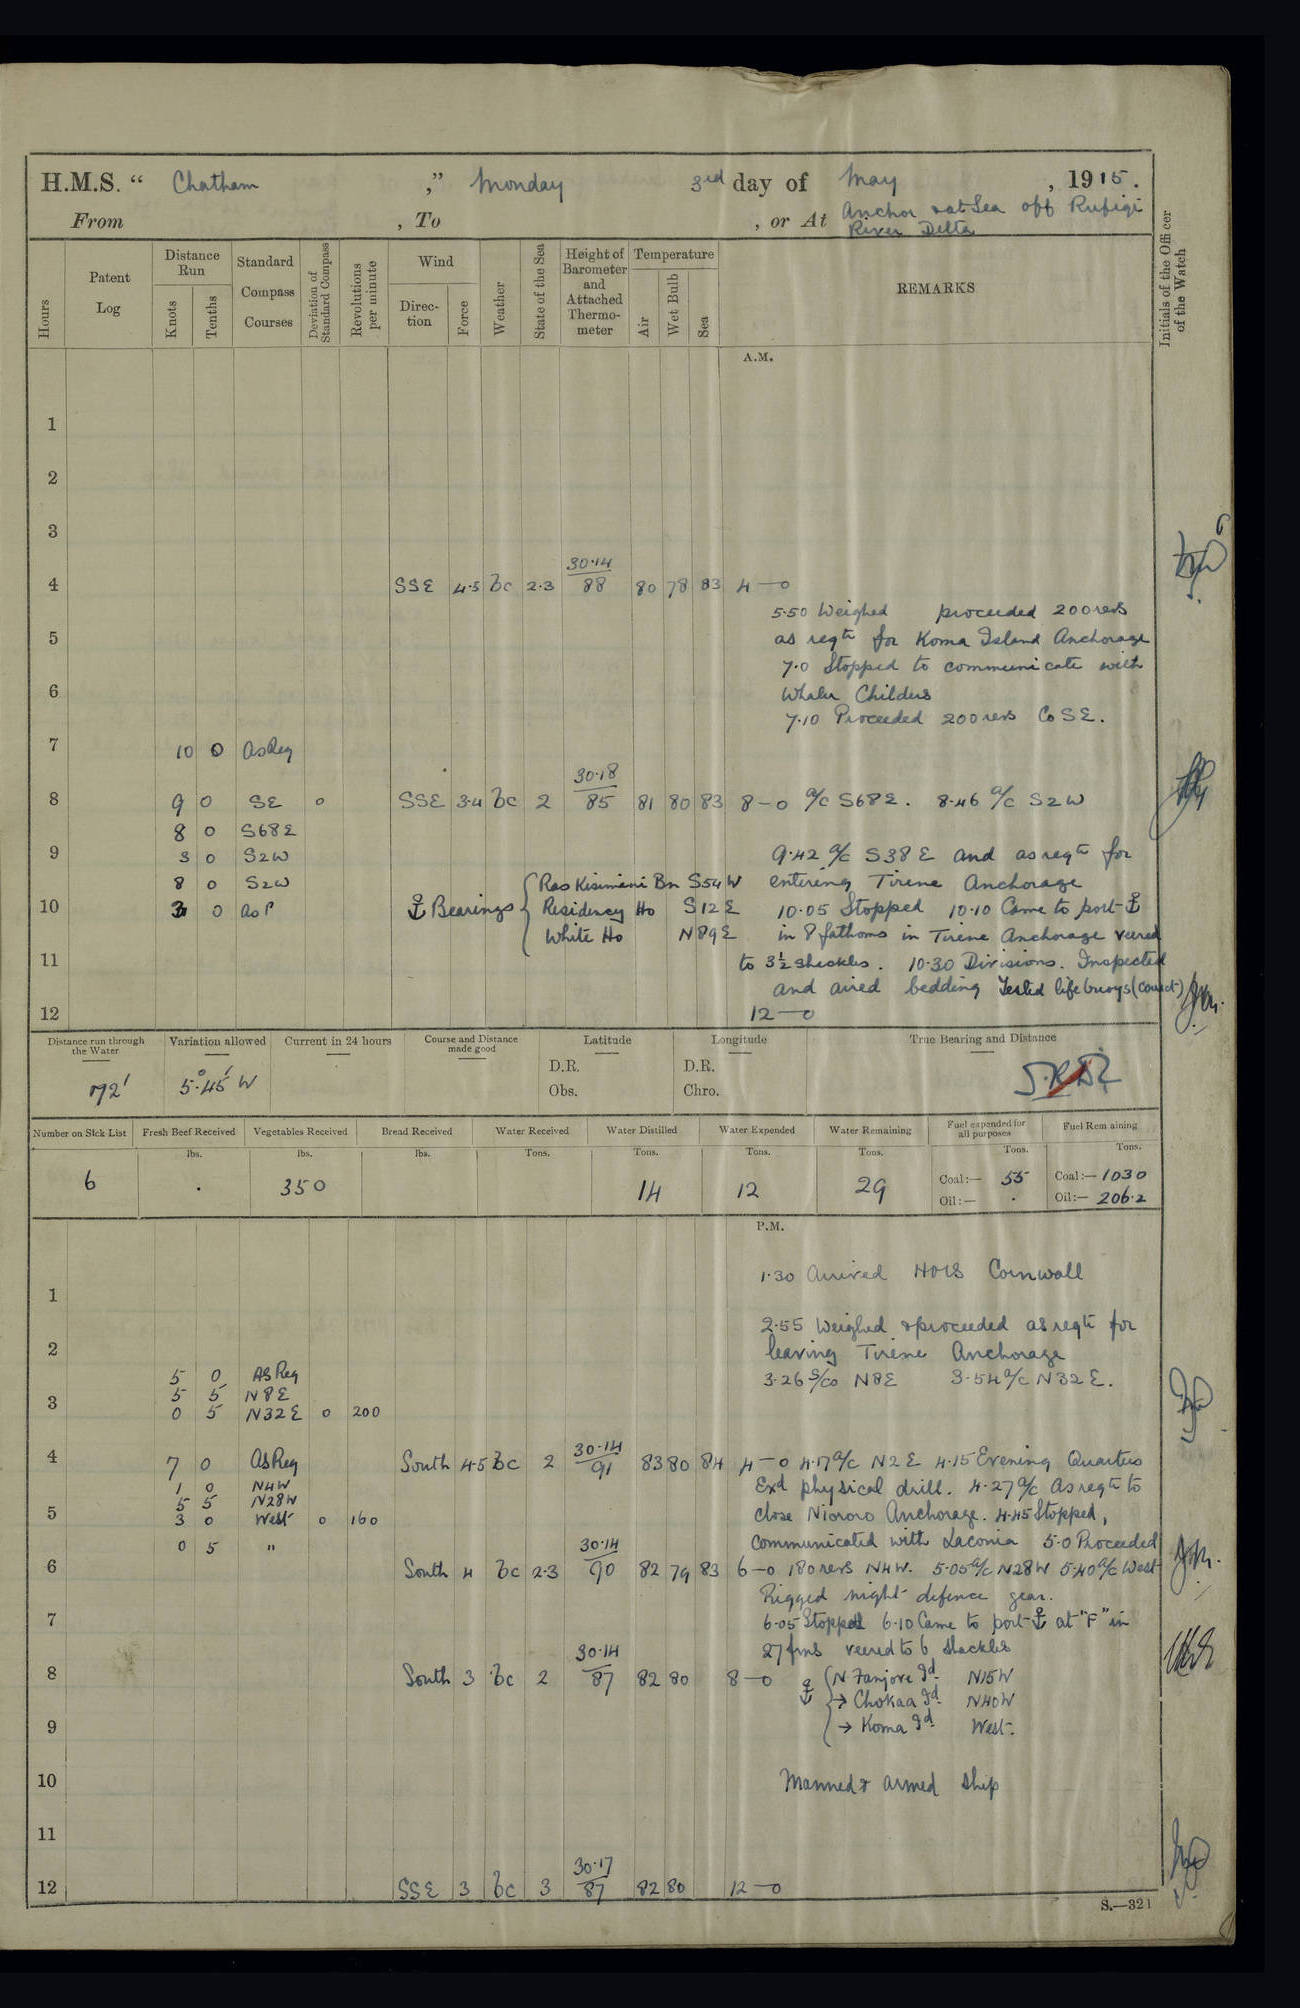 H.M.S. “ Chatham ,” Monday 3rd day of May , 1915.
From , To , or At Anchor & at Sea off Rufigi
River Delta
Hours
Patent Log
Distance Run
Knots
Tenths
Standard Compass Courses
Deviation of Standard Compass
Revolutions per minute
Wind
Direc-tion
Force
Weather
State of the Sea
Height of Barometer and Attached Thermo-meter
Temperature
Air
Wet Bulb
Sea
REMARKS
Initials of the Officer of the Watch
A.M.
1
2
3
30.14
4 SSE 4.5 bc 2.3 88 80 78 83 4—0
5.50 Weighed proceeded 200 revs
5 as reqte for Koma Island Anchorage
7.0 Stopped to communicate with
6 Whaler Childers
7.10 Proceeded 200 revs Co SE.
7 10 0 As Req
30.18
8 9 0 SE 0 SSE 3.4 bc 2 85 81 80 83 8—0 a/c S68E. 8.46 a/c S2W
8 0 S68E
9 3 0 S2W 9.42 a/c S38E and as reqte for
8 0 S2W Ras Kisimani Bn S54W entering Tirene Anchorage
10 3 0 as P ⚓ Bearings Residency Ho S12E 10.05 Stopped 10.10 Came to port ⚓
White Ho N89E in 8 fathoms in Tirene Anchorage veered
11 to 3½ shackles. 10.30 Divisions. Inspected
and aired bedding Tested lifebuoys (correct)
12 12—0
Distance run through the Water
Variation allowed
Current in 24 hours
Course and Distance made good
Latitude
Longitude
True Bearing and Distance
D.R. D.R.
72' 5°.45' W
Obs. Chro.
Number on Sick List
Fresh Beef Received
Vegetables Received
Bread Received
Water Received
Water Distilled
Water Expended
Water Remaining
Fuel expended for all purposes
Fuel Remaining
lbs. lbs. lbs. Tons. Tons. Tons. Tons. Tons. Tons.
6 . 350 14 12 29 Coal:— 55 Coal:— 1030
Oil:— . Oil:— 206.2
P.M.
1.30 Arrived HMS Cornwall
1
2.55 Weighed & proceeded as reqte for
2 leaving Tirene Anchorage
5 0 As Req 3.26 s/co N8E 3.54 a/c N32E.
5 5 N8E
3 0 5 N32E 0 200
30.14
4 7 0 As Req South 4.5 bc 2 91 83 80 84 4—0 4.17 a/c N2E 4.15 Evening Quarters
1 0 N4W Exd physical drill. 4.27 a/c As reqte to
5 5 N28W
5 3 0 West 0 160 close Niororo Anchorage. 4.45 Stopped,
0 5 " communicated with Laconia 5.0 Proceeded
30.14
6 South 4 bc 2.3 90 82 79 83 6—0 180 revs N4W. 5.05 a/c N28W 5.40 a/c West
Rigged night defence gear.
7 6.05 Stopped 6.10 Came to port ⚓ at "F" in
27 fms veered to 6 shackles
30.14
8 South 3 bc 2 87 82 80 8—0 ⚓ N. Fanjove Id. N15W
→ Chokaa Id. N40W
9 → Koma Id. West.
10 Manned & armed ship
11
30.17
12 SSE 3 bc 3 87 82 80 12—0
S.—321